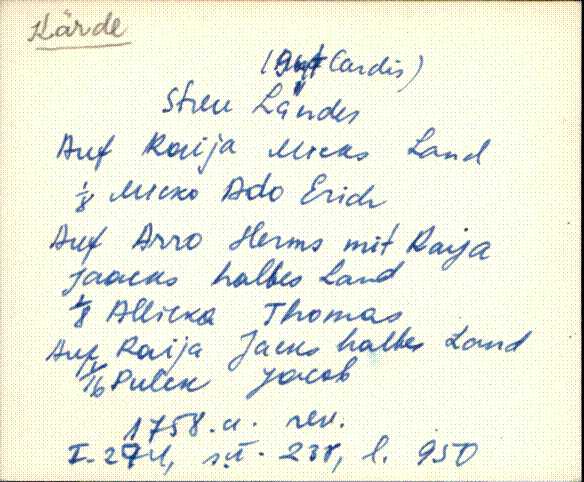 Kärde
(Gut Cardis)
Streu Ländes
Auf Raija Micks Land
1/8 Micko Ado Erich
Auf Arro Herms mit Raija
Jaacks halbes Land
1/8 Allicka Thomas
Auf Raija Jacks halbes Land
1/16 Pulck Jacob
1758. a. rev.
I-274, s.ü. 238, l. 950